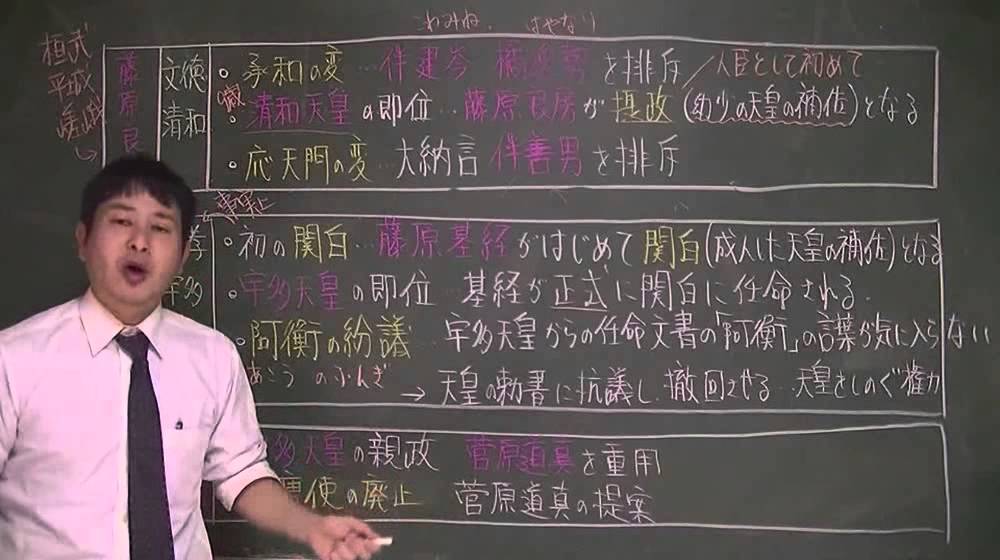 こわみね はやなり
桓武
平城
嵯峨
藤原良
文徳
清和
・承和の変…伴健岑 橘逸勢を排斥／人臣として初めて
・清和天皇の即位…藤原良房が摂政(幼少の天皇の補佐)となる
・応天門の変…大納言伴善男を排斥
事実上
孝
宇多
・初の関白…藤原基経がはじめて関白(成人した天皇の補佐)となる
・宇多天皇の即位 基経が正式に関白に任命される.
・阿衡の紛議…宇多天皇からの任命文書の「阿衡」の言葉が気に入らない
あこう のふんぎ
→天皇の勅書に抗議し、撤回させる…天皇をしのぐ権力
多天皇の親政 菅原道真を重用
使の廃止 菅原道真の提案